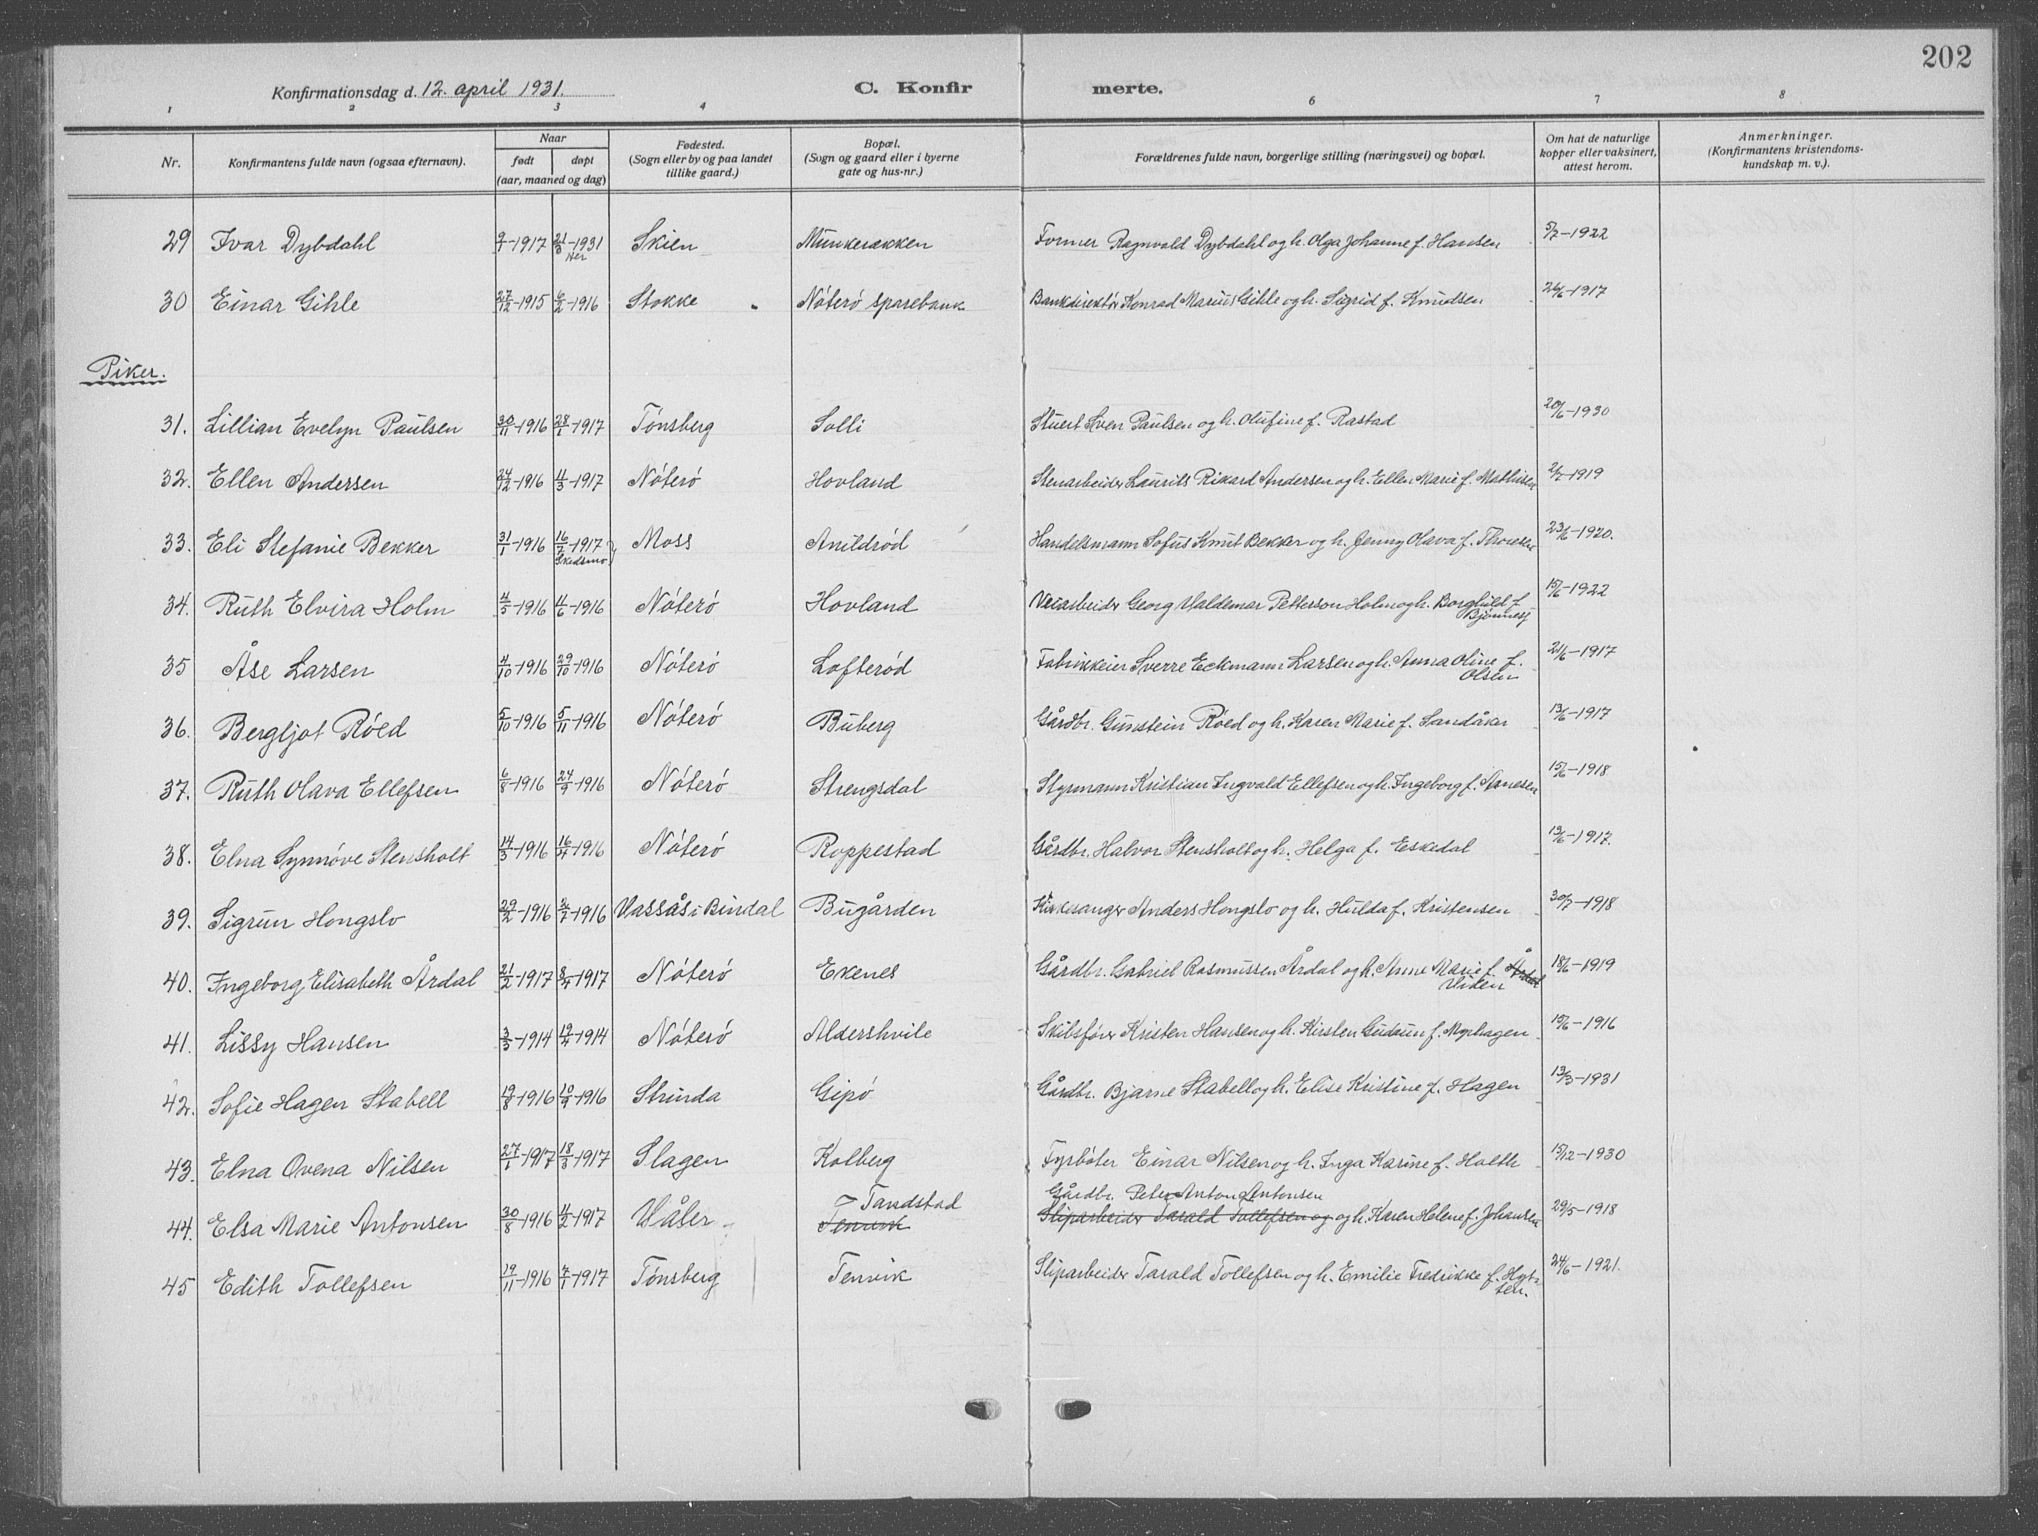 202
Konfirmationsdag d. 12. april 1931. C. Konfirmerte.
1 2 3 4 6 7 8
Nr. Konfirmantens fulde navn (ogsaa efternavn). Naar født døpt (aar, maaned og dag) Fødested. (Sogn eller by og paa landet tillike gaard.) Bopæl. (Sogn og gaard eller i byerne gate og hus-nr.) Forældrenes fulde navn, borgerlige stilling (næringsvei) og bopæl. Om hat de naturlige kopper eller vaksinert, attest herom. Anmerkninger. (Konfirmantens kristendomskundskap m. v.).
29 Ivar Dybdahl 9/1-1917 21/3-1931 her Skien Munkerækken Former Ragnvald Dybdahl og h. Olga Johanne f. Hansen 5/7-1922
30 Einar Gihle 27/12-1915 6/2-1916 Stokke Nóteró sparebank Bankdirektór Konrad Marius Gihle og h. Sigrid f. Knudsen 26/6-1917
Piker.
31. Lillian Evelyn Paulsen 30/11-1916 28/1-1917 Tónsberg Solli Stuert Sven Paulsen og h. Olufine f. Rastad 20/6-1930
32. Ellen Andersen 24/12-1916 11/3-1917 Nóteró Hovland Stenarbeider Laurits Rikard Andersen og h. Ellen Marie f. Mathisen 2/7-1919
33. Eli Stefanie Bekker 31/1-1916 16/2-1917 Skedsmo Moss Anildród Handelsmann Sofus Knut Bekker og h. Jenny Olava f. Thoresen 23/6-1920.
34. Ruth Elvira Holm 11/5-1916 11/6-1916 Nóteró Hovland Veiarbeider Georg Valdemar Petterson Holm og h. Borghild f. Bjónnes 15/6-1922
35 Åse Larsen 11/10-1916 29/10-1916 Nóteró Lofteród Fabrikkeier Sverre Eckmann Larsen og h. Anna Oline f. Olsen 21/6-1917
36. Bergljot Róed 5/10-1916 5/11-1916 Nóteró Buberg Gårdbr. Gunstein Róed og h. Karen Marie f. Sandåker 13/6-1917
37. Ruth Olava Ellefsen 6/8-1916 24/9-1916 Nóteró Strengsdal Styrmann Kristian Ingvald Ellefsen og h. Ingeborg f. Arnesen 15/6-1918
38. Elna Synnóve Stensholt 14/3-1916 16/4-1916 Nóteró Roppestad Gårdbr. Halvor Stensholt og h. Helga f. Eskedal 13/6-1917.
39. Sigrun Hongslo 29/2-1916 2/7-1916 Vassås i Bindal Bugården Kirkesanger Anders Hongslo og h. Hulda f. Kristensen 30/7-1918
40. Ingeborg Elisabeth Årdal 21/2-1917 8/4-1917 Nóteró Ekenes Gårdbr. Gabriel Rasmussen Årdal og h. Anne Marie f. Årdal Viken 18/6-1919
41. Lissy Hansen 3/3-1914 19/4-1914 Nóteró Aldershvile Skibsfórer Kristen Hansen og h. Kirsten Gudrun f. Myrhagen 15/6-1916
42. Sofie Hagen Stabell 19/8-1916 10/9-1916 Strinda Gipó Gårdbr. Bjarne Stabell og h. Elise Kristine f. Hagen 13/3-1931
43. Elna Ovena Nilsen 27/1-1917 18/3-1917 Slagen Kolberg Fyrbóter Einar Nilsen og h. Inga Karine f. Holth 15/12-1930
Tandstad Gårdbr. Peter Anton Antonsen
44. Elsa Marie Antonsen 30/8-1916 11/2-1917 Våler Tenvik Sliparbeider Tarald Tollefsen og og h. Karen Helene f. Johansen 29/5-1918
45 Edith Tollefsen 19/11-1916 7/1-1917 Tónsberg Tenvik Sliparbeider Tarald Tollefsen og h. Emilie Fredrikke f. Hyt-
ten. 24/6-1921.